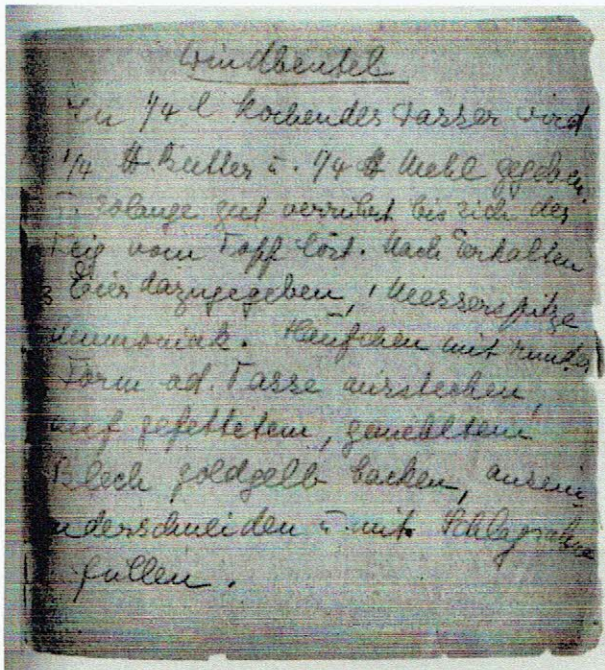 Windbeutel
In 1/4 l kochendes Wasser wird
1/4 ℔ Butter u. 1/4 ℔ Mehl gegeben
u. solange gut verrührt bis sich der
Teig vom Topf löst. Nach Erkalten
3 Eier dazugegeben, 1 Messerspitze
Ammoniak. Häufchen mit runder
Form od. Tasse ausstechen,
auf gefettetem, gemehltem
Blech goldgelb backen, ausein-
anderschneiden u. mit Schlagsahne
füllen.